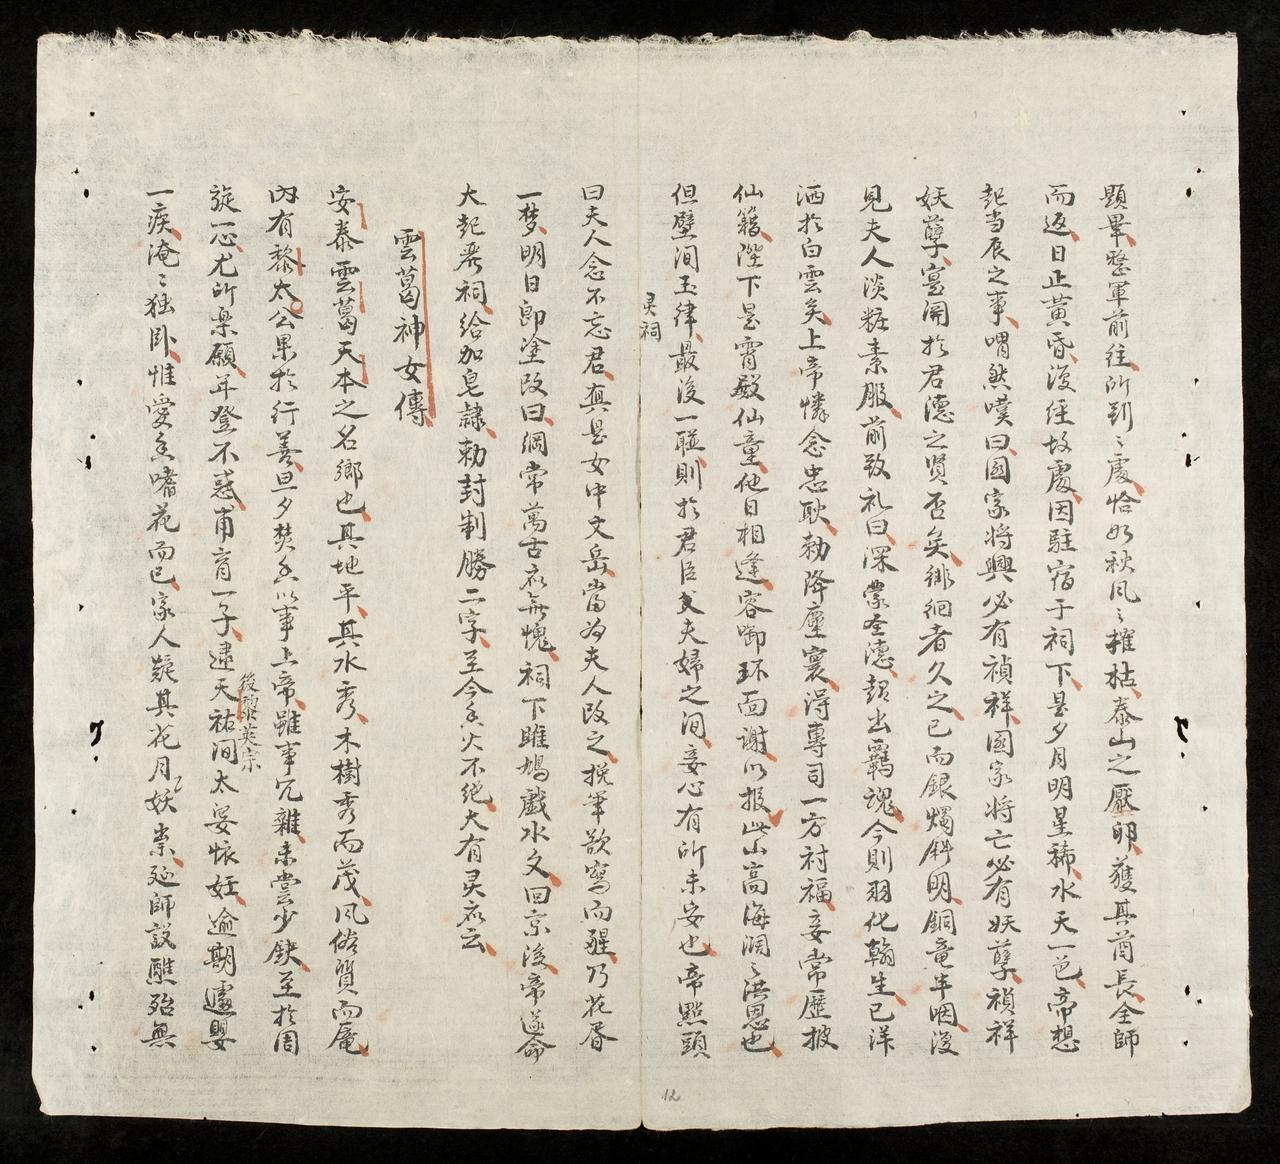 顕畢整軍前往所到〻處恰如秋風之摧枯泰山之壓卵獲其酋長全師
而返日止黃昏復經故處因駐宿于祠下是夕月明星稀水天一色帝想
起当辰之事喟然嘆曰國家將興必有禎祥國家將亡必有妖孽禎祥
妖孽寔関於君德之賢否矣徘徊者久之已而銀燭斜明銅竜半咽復
見夫人淡粧素服前致礼曰深蒙圣德超出羈魂今則羽化翰生已洋
洒於白雲矣上帝憐念忠耿勅降塵寰淂專司一方対福妾常歷披
仙籍陛下是霄殿仙童他日相逢容啣环面謝以报此山高海濶之洪恩也
但壁间玉律最後一聮則於君臣父夫婦之间妾心有所未安也帝點頭
灵祠
曰夫人念不忘君真是女中文岳當为夫人改之挽筆欲寫而醒乃花昏
一梦明日即塗改曰綱常萬古亦無愧祠下雎鳩戲水文回京後帝遂命
大起灵祠给加皂隷勅封制勝二字至今香火不絶大有灵亦云
雲葛神女傳
安泰雲葛天本之名鄉也其地平其水秀木樹秀而茂風俗質而厖
内有黎太公果於行善旦夕焚香以事上帝雖事冗雜未嘗少缺至於周
旋一心尤所樂願年登不惑甫育一子逮天祐间太娑懐妊逾期遽嬰
後黎英宗
一疾淹〻独卧惟愛香嗜花而已家人疑其花月妖祟延師設醮殆無
12